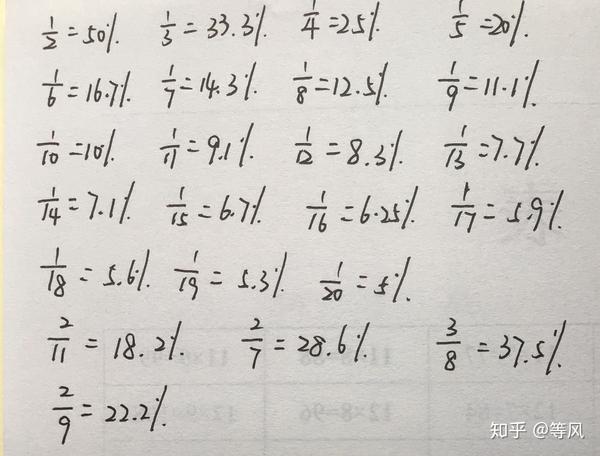 1/2 = 50% 1/3 = 33.3% 1/4 = 25% 1/5 = 20%
1/6 = 16.7% 1/7 = 14.3% 1/8 = 12.5% 1/9 = 11.1%
1/10 = 10% 1/11 = 9.1% 1/12 = 8.3% 1/13 = 7.7%
1/14 = 7.1% 1/15 = 6.7% 1/16 = 6.25% 1/17 = 5.9%
1/18 = 5.6% 1/19 = 5.3% 1/20 = 5%
2/11 = 18.2% 2/7 = 28.6% 3/8 = 37.5%
2/9 = 22.2%
知乎 @等风